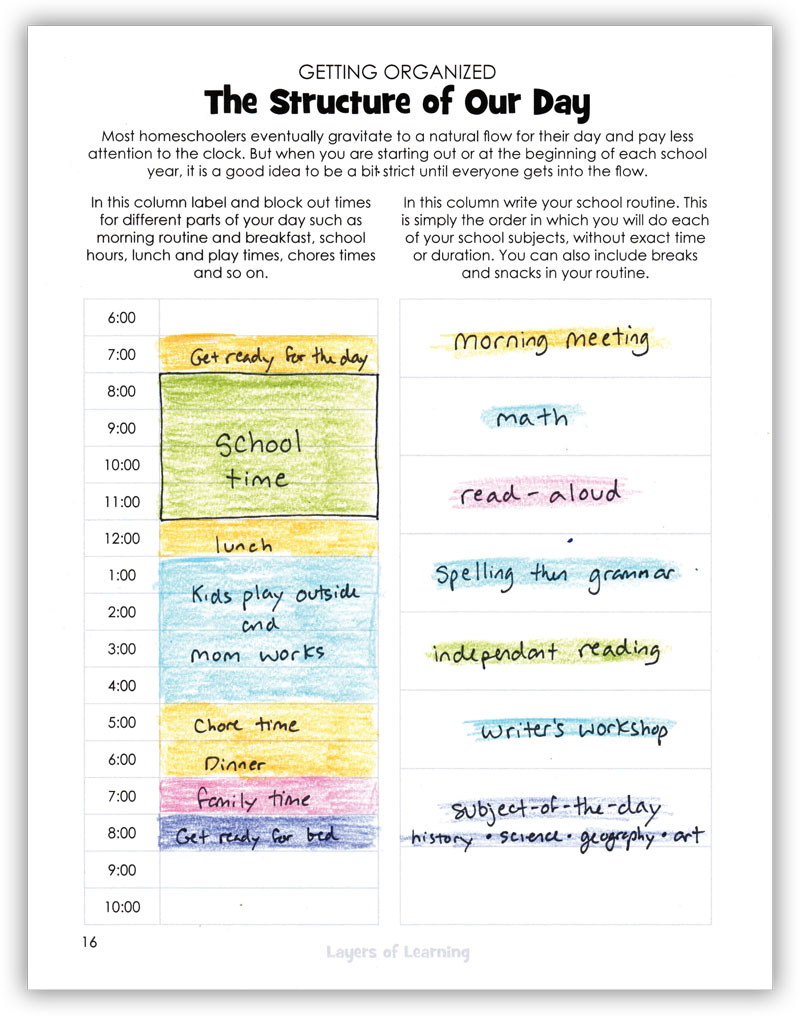 GETTING ORGANIZED
The Structure of Our Day
Most homeschoolers eventually gravitate to a natural flow for their day and pay less
attention to the clock. But when you are starting out or at the beginning of each school
year, it is a good idea to be a bit strict until everyone gets into the flow.
In this column label and block out times
for different parts of your day such as
morning routine and breakfast, school
hours, lunch and play times, chores times
and so on.
6:00
7:00 Get ready for the day
8:00
9:00
School
10:00
time
11:00
12:00 lunch
1:00
Kids play outside
2:00
and
3:00 mom works
4:00
5:00 Chore time
6:00 Dinner
7:00 family time
8:00 Get ready for bed
9:00
10:00
In this column write your school routine. This
is simply the order in which you will do each
of your school subjects, without exact time
or duration. You can also include breaks
and snacks in your routine.
morning meeting
math
read-aloud
Spelling then grammar
independant reading
writer's workshop
subject-of-the-day
history • science • geography • art
16
Layers of Learning